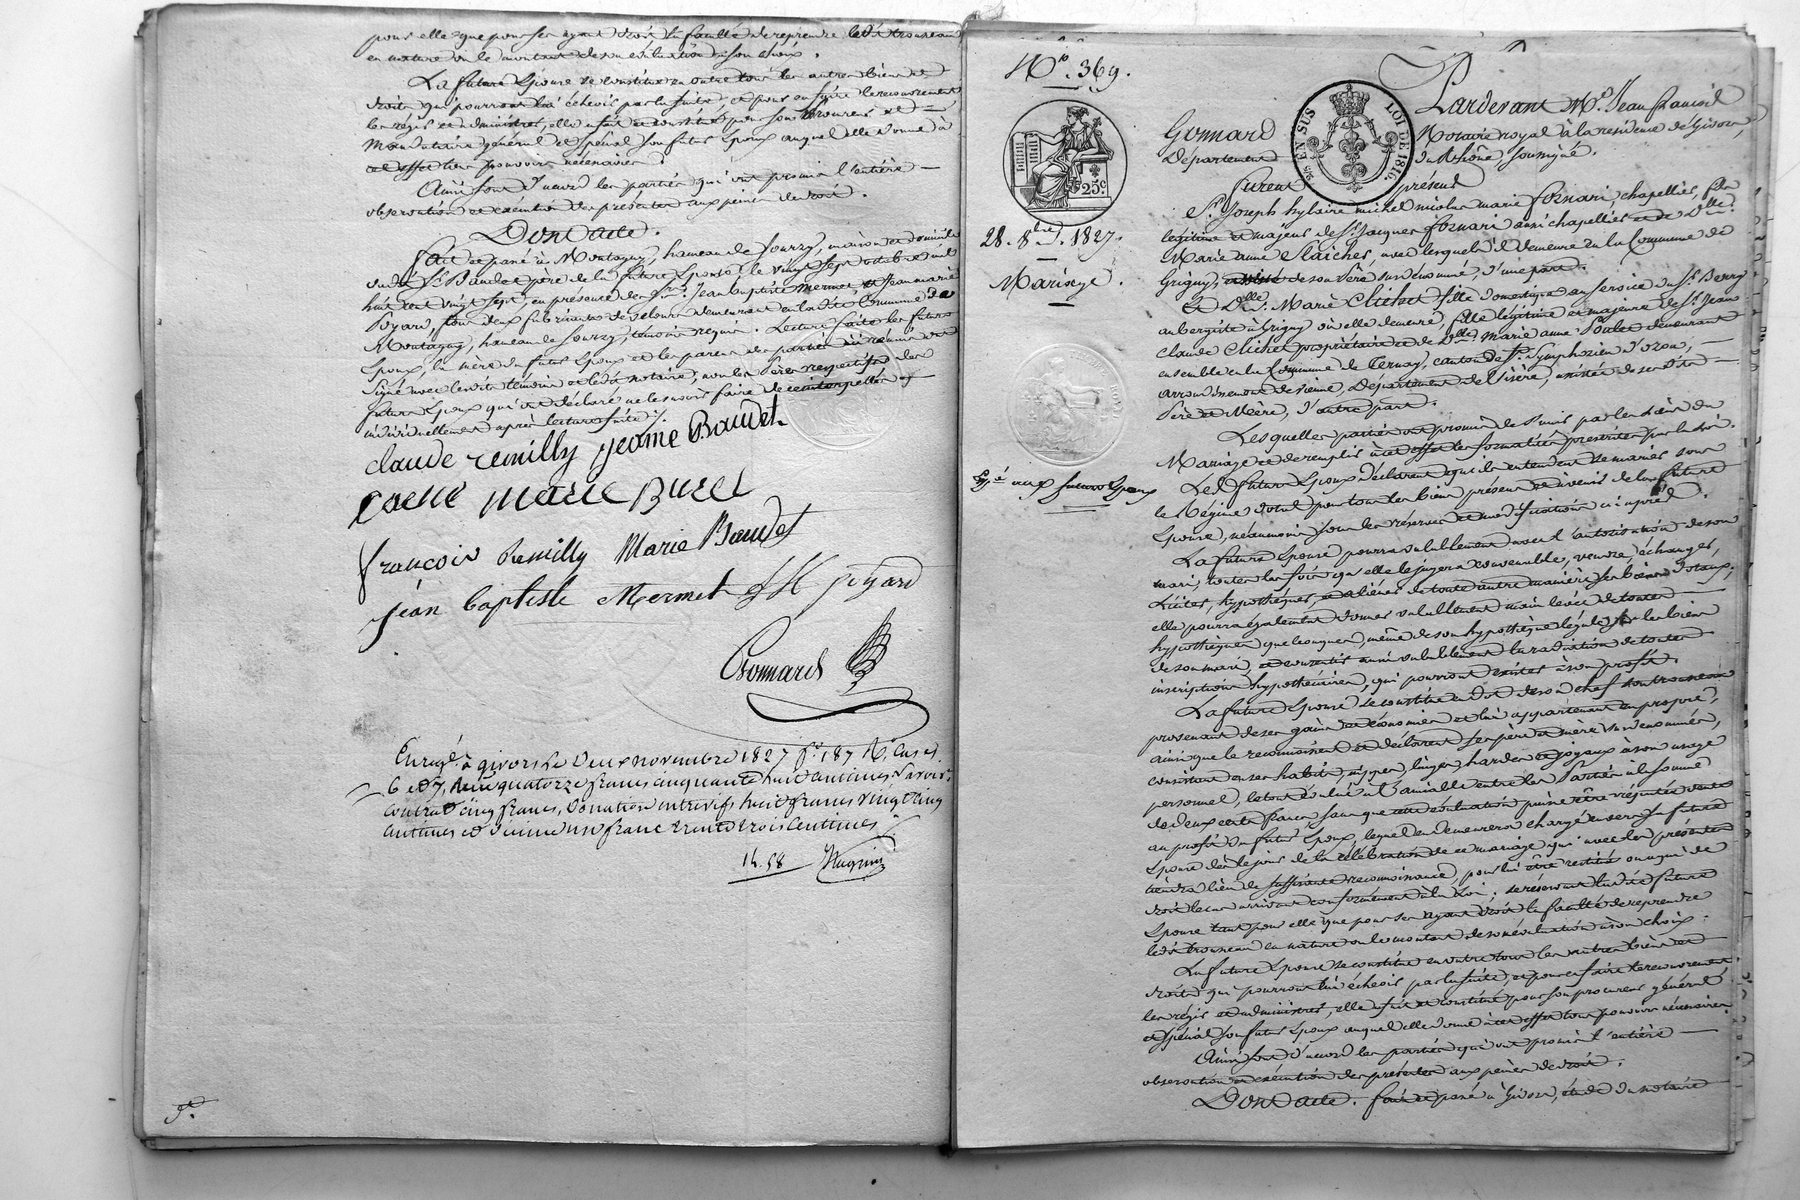 pour elle que pour ses ayant droit la faculté de reprendre ledit trousseau
en nature ou le montant de son évaluation à son choix.
La future Epouse se constitue en outre tous les autres biens et
droits qui pourront lui échoir par la suite, et pour en faire le recouvrement
les régir et administrer, elle a fait et constitué pour son procureur et
Mandataire général et spécial son futur Epoux auquel elle donne à
cet effet tous pouvoirs nécessaires.
Ainsi sont d'accord les parties qui ont promis l'entière
observation et exécution des présentes aux peines de droit.
Dont acte.
Fait et passé à Montagny, hameau de Sourzy, maison et domicile
dudit Sr. Baudet père de la future Epouse, le vingt sept octobre mil
huit cent vingt sept, en présence des Srs. Jean baptiste Mermet et Jean marie
Poyard, tous deux fabricants de velours demeurant en ladite Commune de
Montagny, hameau de Sourzy, témoins requis. Lecture faite les futurs
Epoux, la mère du futur Epoux et les parents des parties ont
Signé avec lesdits témoins et ledit notaire, non les pères respectifs des
futurs Epoux qui ont déclaré ne le savoir faire de ce interpellés
individuellement après lecture faite /.
claude remilly jeanne Baudet
marie Buel
francois Remilly Marie Baudet
jean baptiste Mermet
Gonnard
Enregé. à givors le deux novembre 1827 fo. 187 Ro. cases
6 et 7, Reçu quatorze francs cinquante huit centimes, Savoir:
contrat cinq francs, donation entrevifs huit francs vingt cinq
centimes et dixième un franc trente trois Centimes
14.58
No. 369.
EN SUS
LOI DE 1816.
25c
28. 8bre. 1827.
Mariage.
Expé aux futurs Epoux
Pardevant Me. Jean
Gonnard Notaire royal à la résidence de Givors,
Département du Rhône soussigné.
Furent présens
Sr. Joseph hylaire michel nicolas marie fornari, chapellier, fils
légitime et majeur de Sr. Jacques fornari aussi chapellier et de Dlle.
Marie anne Slaiches, avec lesquels il demeure en la Commune de
Grigny, de son Père sus nommé, d'une part.
Et Dlle. Marie Clichet fille domestique au service du Sr. Berry
aubergiste à Grigny où elle demeure, fille légitime et majeure de Sr. Jean
claude Clichet propriétaire et de Dlle. Marie anne Poulet demeurant
ensemble en la Commune de Ternay, canton de St. Symphorien d'ozon,
arrondissement de vienne, Département de l'isère, assistée de ses dits
Père et Mère, d'autre part.
Lesquelles parties ont promis de s'unir par les liens du
Mariage et de remplir à cet effet les formalités prescrites par la loi.
Lesdits futurs Epoux déclarent qu'ils entendent se marier sous
le Régime dotal pour tous les biens présens et avenir de la future
Epouse, néanmoins sous les réserves et modifications ci après.
La future Epouse pourra valablement avec l'autorisation de son
mari, toutes les fois qu'elle le jugera convenable, vendre, échanger,
Liciter, hypothéquer, et aliéner de toute autre manière ses biens dotaux;
elle pourra également donner valablement main levée de toutes
hypothèques quelconques, même de son hypothèque légale sur les biens
de son mari, et consentir aussi valablement la radiation de toutes
inscriptions hypothécaires, qui pourront exister à son profit.
La future Epouse se constitue en dot de son chef son trousseau
provenant de ses gains et économies et lui appartenant en propre,
ainsi que le reconnoissent et déclarent ses père et mère sus nommés,
consistant en ses habits, nippes, linges, hardes et joyaux à son usage
personnel, le tout évalué à l'amiable entre les Parties à la somme
de deux cents francs sans que cette évaluation puisse être réputée vente
au profit du futur Epoux, lequel en demeurera chargé envers la future
Epouse dès le jour de la célébration de ce mariage qui avec les présentes
tiendra lieu de suffisante reconnoissance, pour lui être restitué ou à qui de
droit le cas arrivant conformément à la Loi; se réservant ladite future
Epouse tant pour elle que pour ses ayant droit la faculté de reprendre
ledit trousseau en nature ou le montant de son évaluation à son choix.
La future Epouse se constitue en outre tous les autres biens et
droits qui pourront lui échoir par la suite, et pour en faire le recouvrement
les régir et administrer, elle a fait et constitué pour son procureur général
et spécial son futur Epoux auquel elle donne à cet effet tous pouvoirs nécessaires.
Ainsi sont d'accord les parties qui ont promis l'entière
observation et exécution des présentes aux peines de droit.
Dont acte. fait et passé à Givors, étude du notaire